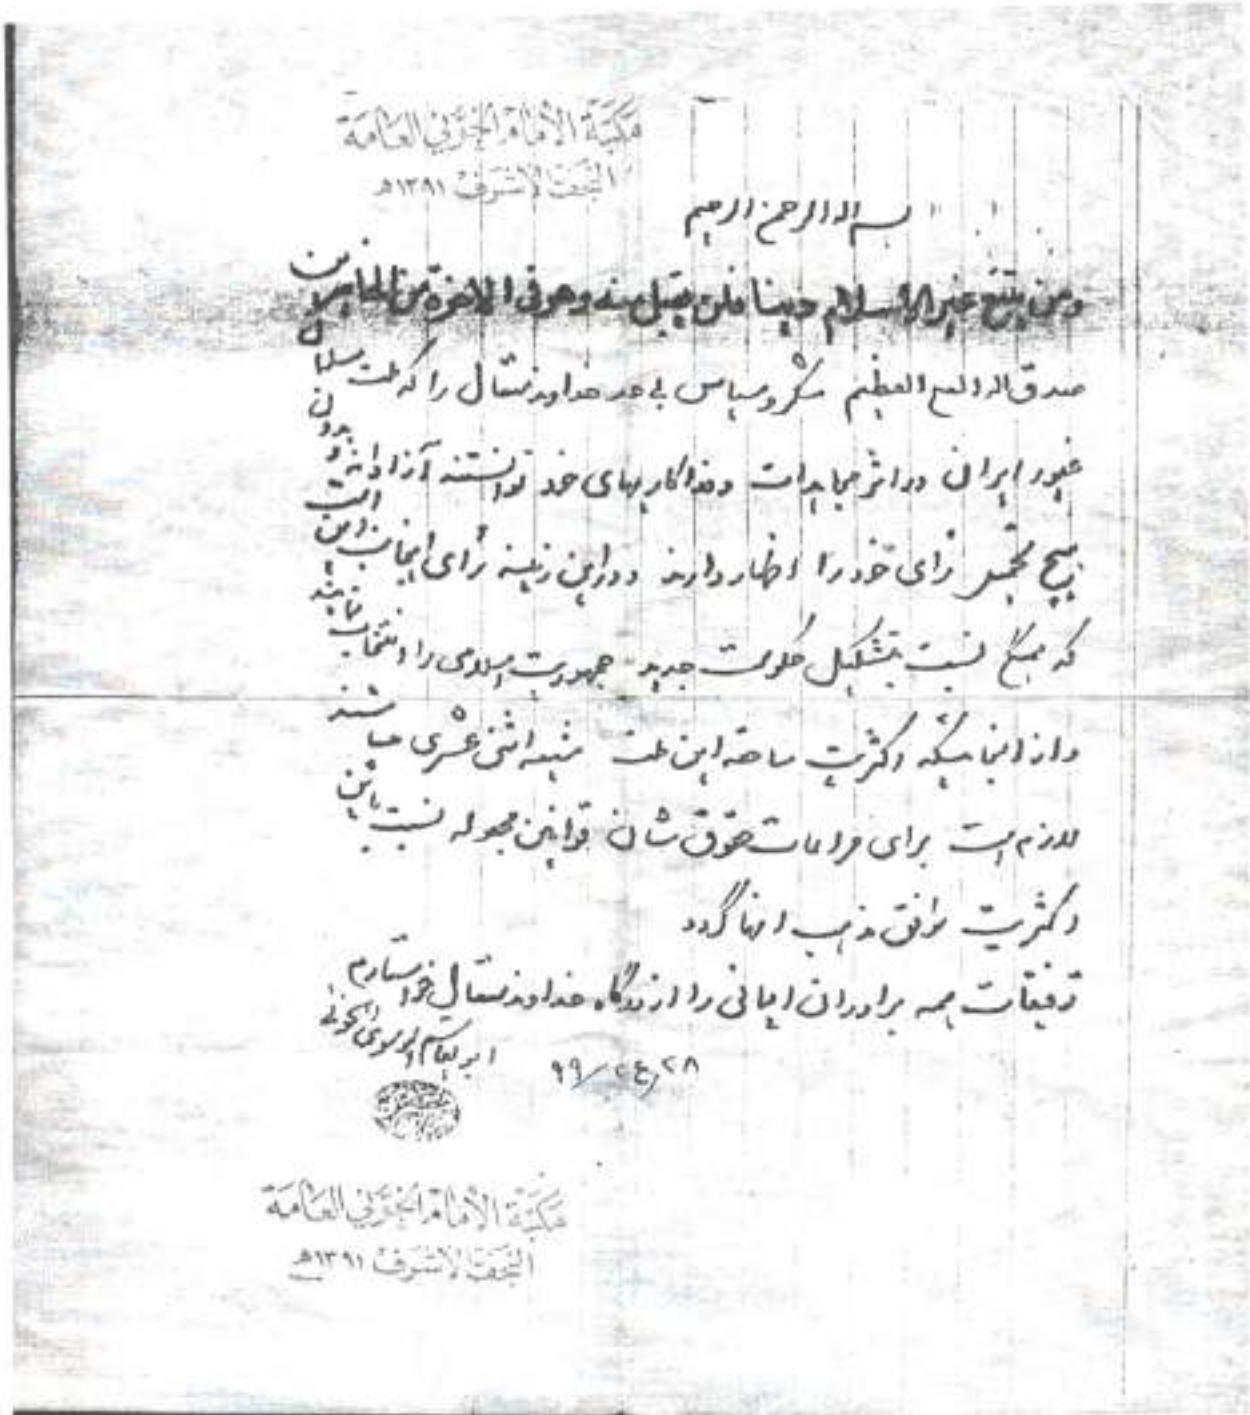 مكتبة الامام الخوئي العامة
النجف الاشرف ١٣٩١هـ
بسم الله الرحمن الرحیم
ومن یبتغ غیر الاسلام دینا فلن یقبل منه وهو فی الاخرة من الخاسرین
صدق اله العلی العظیم شکر و سپاس بی حد خداوند متعال را که ملت مسلمان
غیور ایران در اثر مجاهدات و فداکاریهای خود توانستند آزادانه و بدون
هیچ تحمیل رأی خود را اظهار دارند و در این زمینه رأی اینجانب این است
که همگی نسبت بتشکیل حکومت جدید جمهوریت اسلامی را انتخاب نمایند
و از اینجائیکه اکثریت ساحقه این ملت شیعه اثنی عشری میباشند
لازم است برای مراعات حقوق شان قوانین مجعوله نسبت باین
اکثریت موافق مذهب انها گردد
توفیقات همه برادران ایمانی را از درگاه خداوند متعال خواستارم
ابوالقاسم الموسوی الخوئی
٢٨/ع٢/٩٩
مكتبة الامام الخوئي العامة
النجف الاشرف ١٣٩١هـ